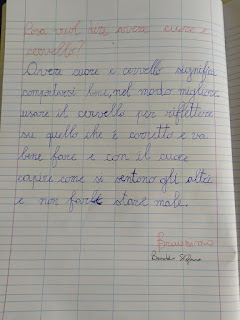 Cosa vuol dire avere cuore e
cervello?
Avere cuore e cervello significa
comportarsi bene, nel modo migliore
usare il cervello per riflettere
su quello che è corretto e va
bene fare e con il cuore
capire come si sentono gli altri
e non farli stare male.
Bravissimo
Stefano